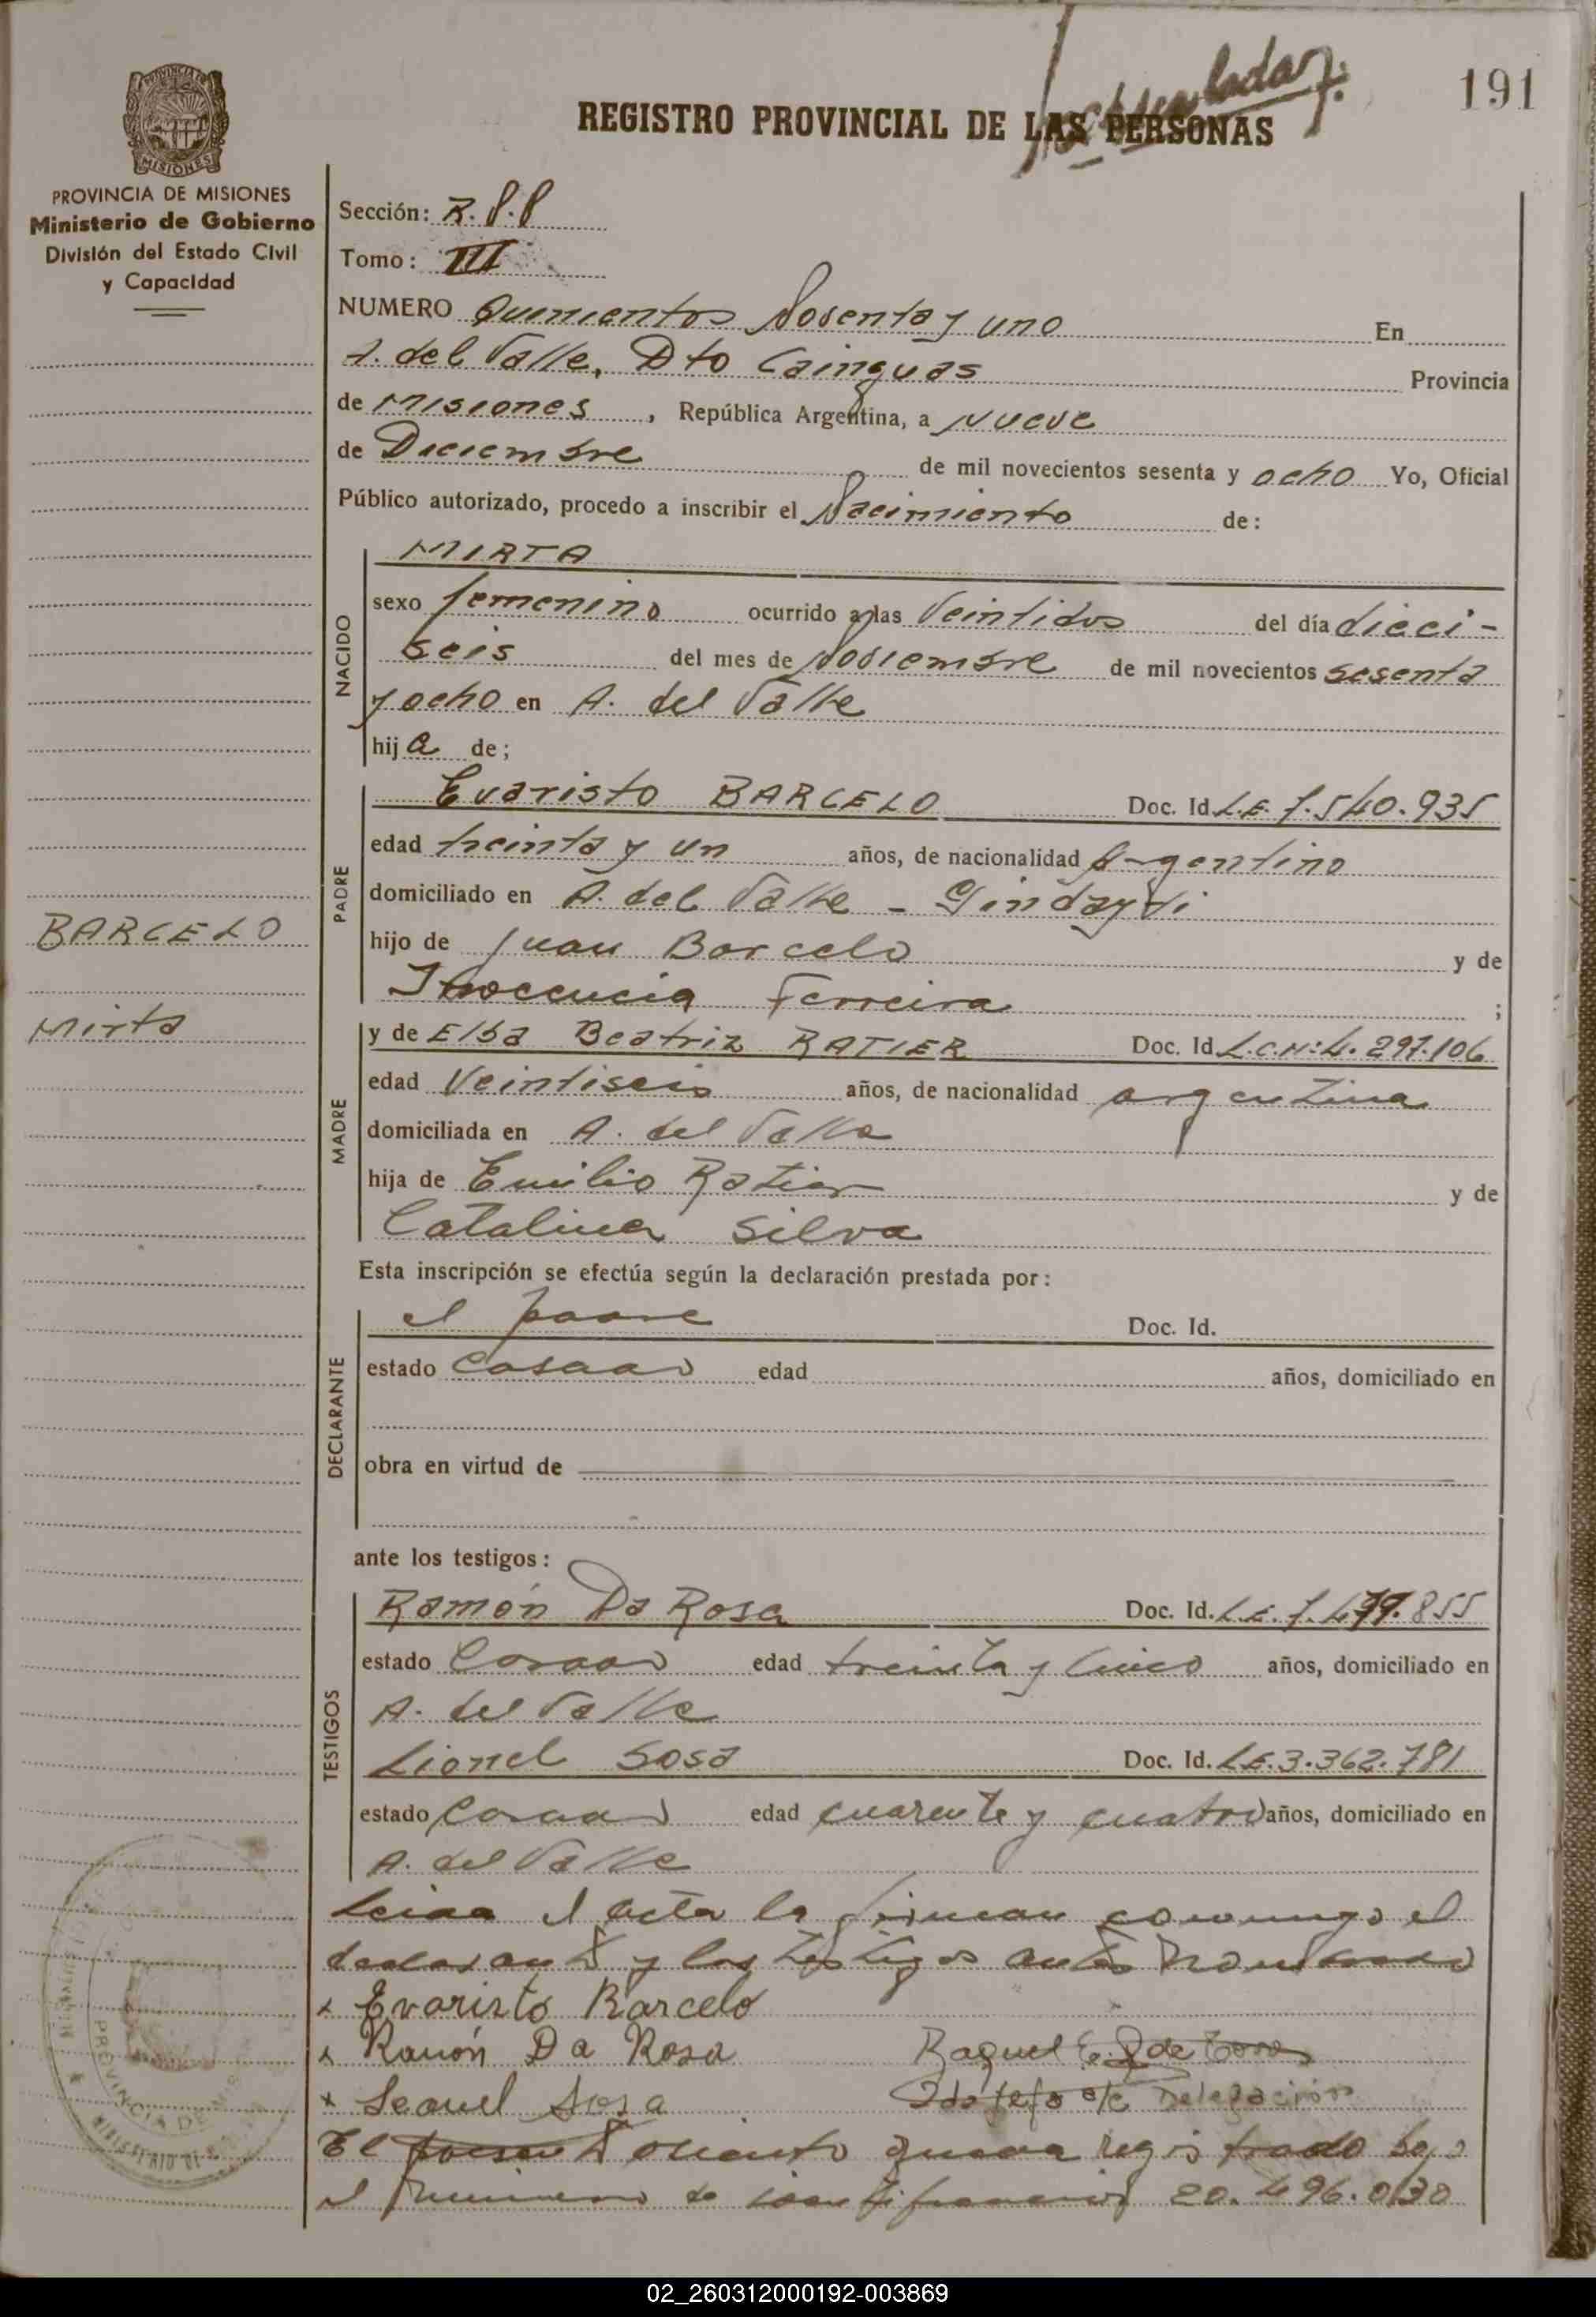 191
REGISTRO PROVINCIAL DE LAS PERSONAS
PROVINCIA DE MISIONES
MISIONES
PROVINCIA DE MISIONES
Ministerio de Gobierno
División del Estado Civil
y Capacidad
Sección: R.P.P
Tomo: III
NUMERO Quinientos Noventa y uno En
A. del Valle, Dto Cainguas Provincia
de Misiones, República Argentina, a Nueve
de Diciembre de mil novecientos sesenta y ocho Yo, Oficial
Público autorizado, procedo a inscribir el Nacimiento de:
NACIDO
MIRTA
sexo femenino ocurrido a las Veintidos del día dieci-
seis del mes de Noviembre de mil novecientos sesenta
y ocho en A. del Valle
hija de;
PADRE
Evaristo BARCELO Doc. Id. L.E. 7.540.935
edad treinta y un años, de nacionalidad Argentino
domiciliado en A. del Valle -
hijo de Juan Barcelo y de
Inocencia Ferreira ;
BARCELO
Mirta
MADRE
y de Elba Beatriz RATIER Doc. Id. L.C.Nº:4.297.106
edad Veintiseis años, de nacionalidad argentina
domiciliada en A. del Valle
hija de Emilio Ratier y de
Catalina Silva
Esta inscripción se efectúa según la declaración prestada por:
DECLARANTE
el padre Doc. Id.
estado Casado edad años, domiciliado en
obra en virtud de
ante los testigos:
TESTIGOS
Ramón Da Rosa Doc. Id. L.E. 7.479.855
estado Casado edad treinta y cinco años, domiciliado en
A. del Valle
Lionel Sosa Doc. Id. L.E. 3.362.781
estado Casado edad cuarenta y cuatro años, domiciliado en
A. del Valle
Leida el acta la firman conmigo el
declarante y los testigos antes nombrado
x Evaristo Barceló
x Ramón Da Rosa
Raquel E.
x Leonel Sosa
Delegación
El presente asiento queda registrado bajo
el numero de identificacion 20.496.030
PROVINCIA DE MISIONES
MINISTERIO DE
02_260312000192-003869